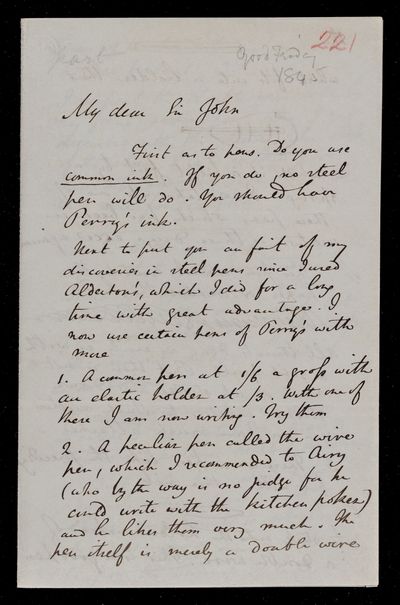 221
Good Friday
1845
My dear Sir John
First as to pens. Do you use
common ink. If you do, no steel
pen will do. You should have
Perry's ink.
Next to put you au fait of my
discoveries in steel pens since I used
Alderton's, which I did for a long
time with great advantage. I
now use certain pens of Perry's with
more
1. A common pen at 1/6 a gross with
an elastic holder at /3. With one of
these I am now writing. Try them
2. A peculiar pen called the wire
pen, which I recommended to Airy
(who by the way is no judge for he
could write with the kitchen poker)
and he likes them very much. The
pen itself is merely a double wire